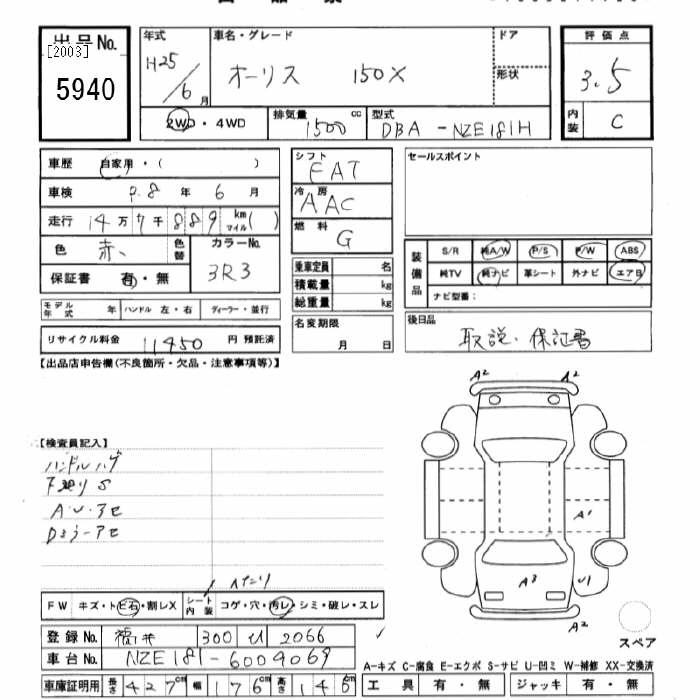 出品No. [2003] 5940
年式 H25/6月
車名・グレード オーリス 150X
ドア
形状
2WD・4WD
排気量 1500 cc
型式 DBA-NZE181H
評価点 3.5
内装 C
車歴 自家用・( )
車検 R8年 6月
走行 14万7千889 km マイル( )
色 赤、 色替 カラーNo. 3R3
保証書 有・無
モデル年式 年 ハンドル 左・右 ディーラー・並行
リサイクル料金 11450 円 預託済
シフト FAT
冷房 AAC
燃料 G
乗車定員 名
積載量 kg
総重量 kg
名変期限 月 日
セールスポイント
装備品 S/R 純A/W P/S P/W ABS
純TV 純ナビ 革シート 外ナビ エアB
ナビ型番:
後日品 取説、保証書
【出品店申告欄(不良箇所・欠品・注意事項等)】
【検査員記入】
ハンドルハゲ
下廻りS
A・U・アセ
A2 A2
A1
A3 U1
A2
スペア
FW キズ・トビ石・割レX シート内装 コゲ・穴・汚レ・シミ・破レ・スレ
登録No. 福井 300 2066
車台No. NZE181-6009069
車庫証明用 長さ 427cm 幅 176cm 高さ 146cm
A-キズ C-腐食 E-エクボ S-サビ U-凹ミ W-補修 XX-交換済
工具 有・無 ジャッキ 有・無